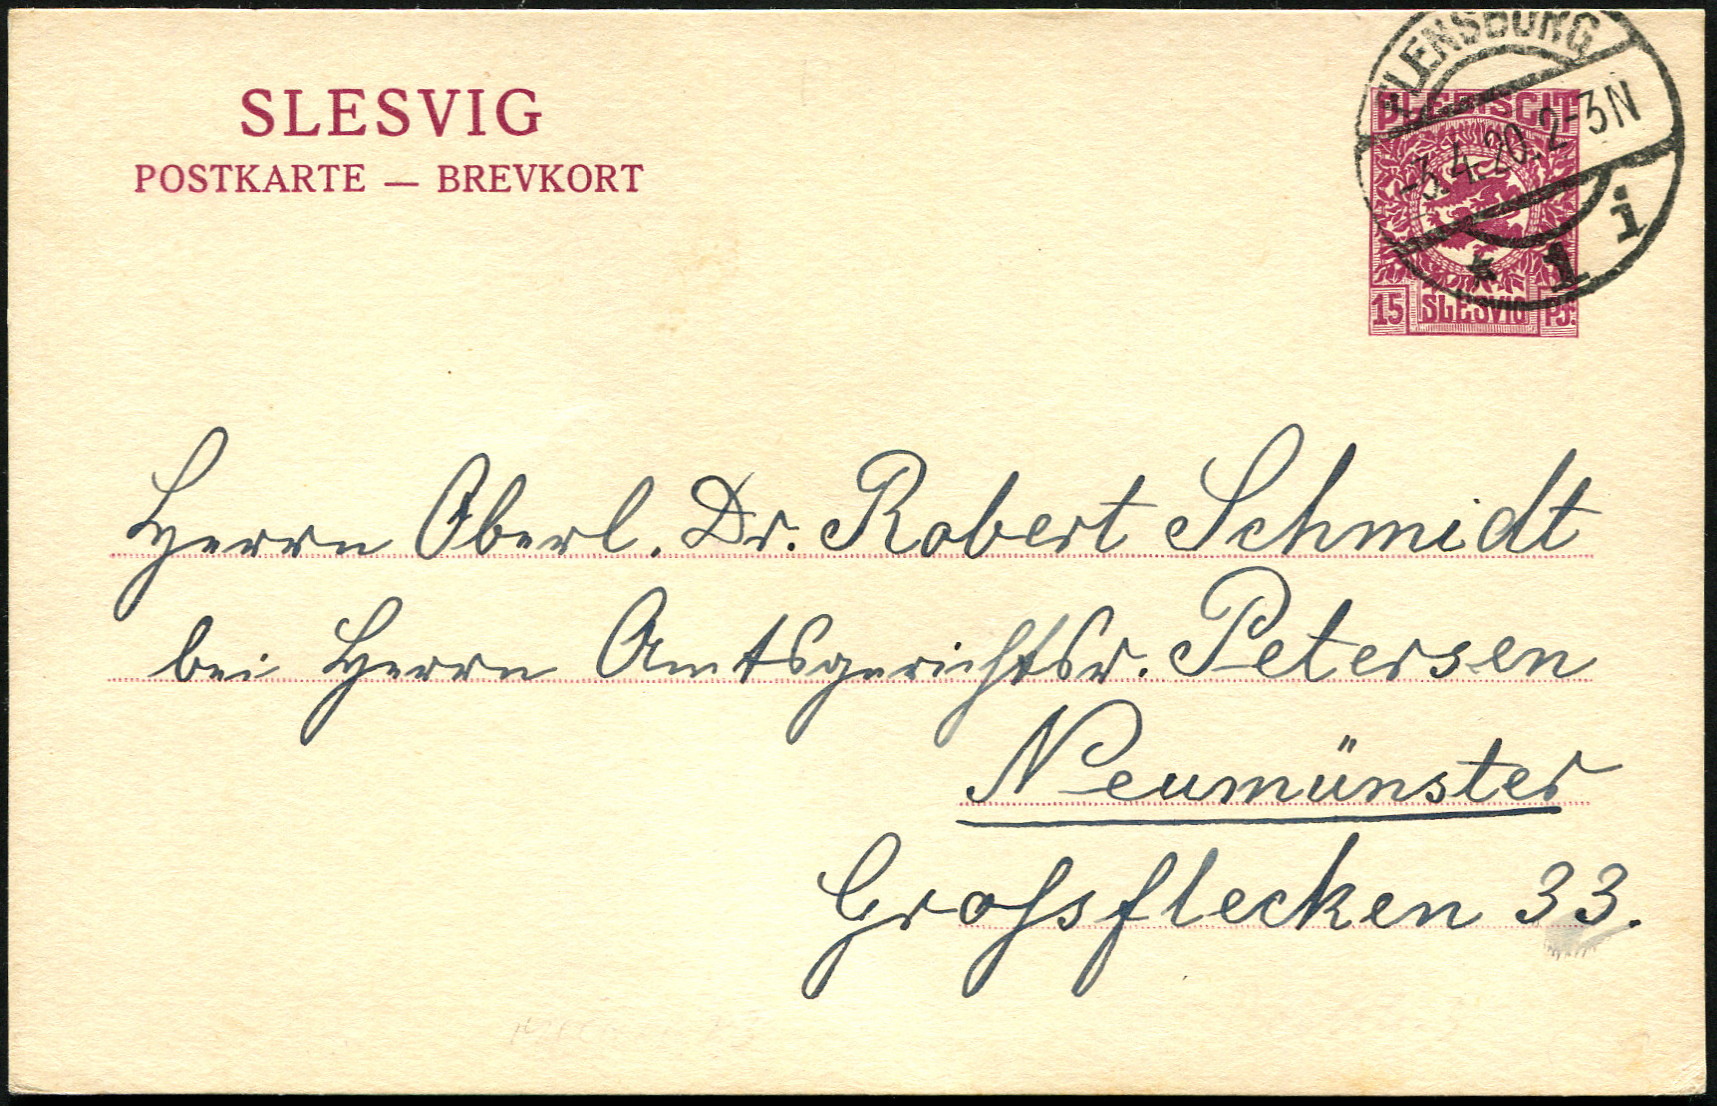 SLESVIG
POSTKARTE — BREVKORT
FLENSBURG
-3.4.20. 2-3N
* 1 i
PLEBISCIT
15 SLESVIG Pf.
Herrn Oberl. Dr. Robert Schmidt
bei Herrn Amtsgerichtsr. Petersen
Neumünster
Grossflecken 33.